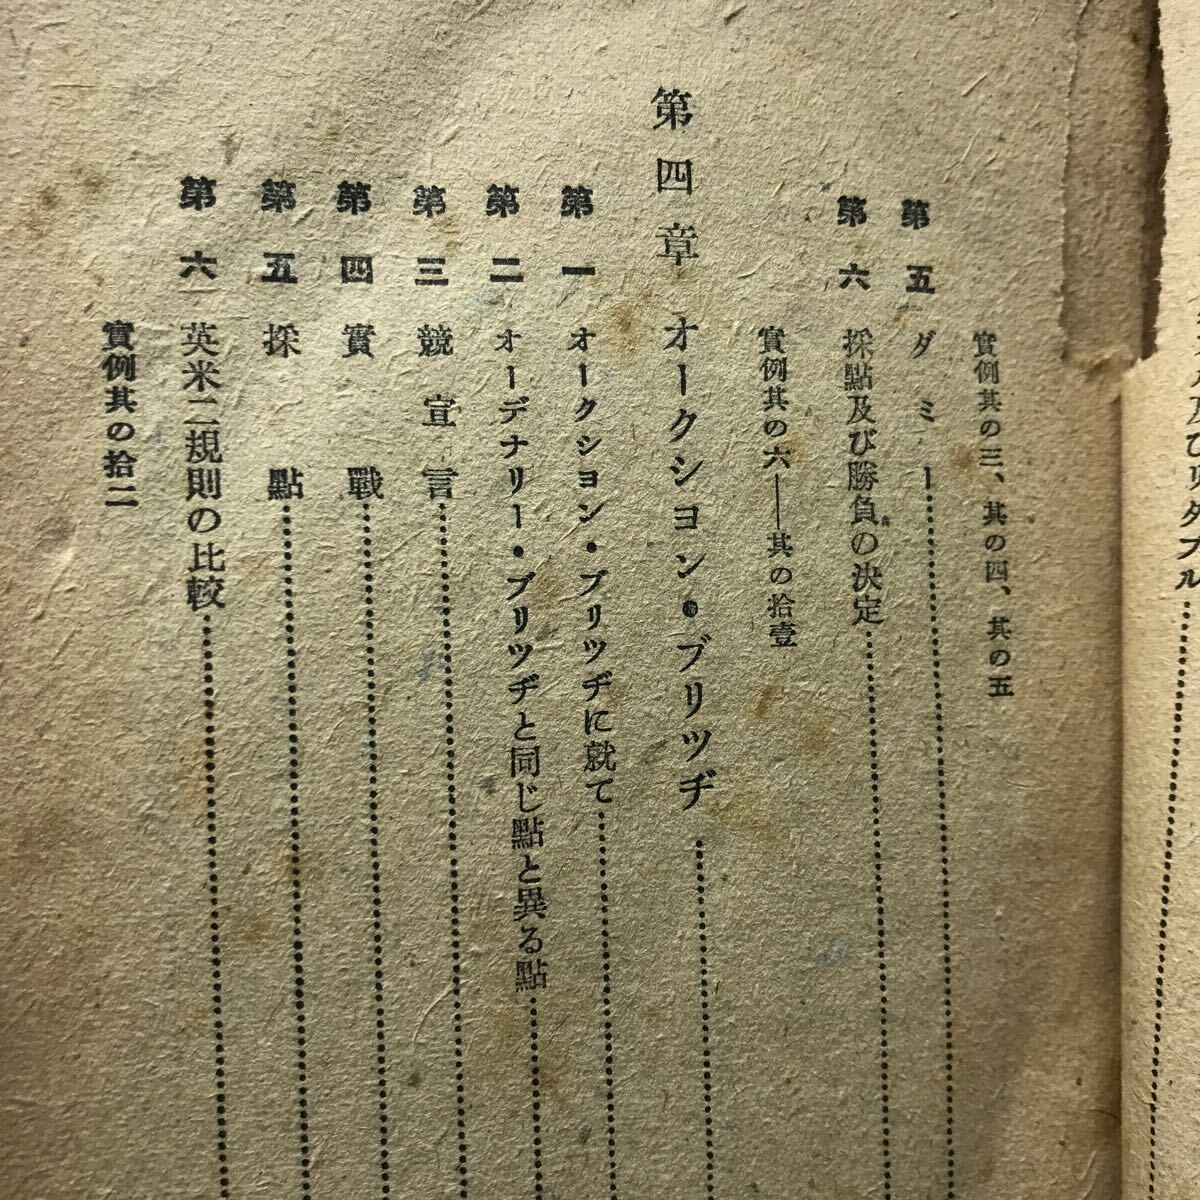 實例其の三、其の四、其の五
第五 ダミー
第六 採點及び勝負の決定
實例其の六——其の拾壹
第四章 オークシヨン・ブリツヂ
第一 オークシヨン・ブリツヂに就て
第二 オーデナリー・ブリツヂと同じ點と異る點
第三 競宣言
第四 實戰
第五 採點
第六 英米二規則の比較
實例其の拾二